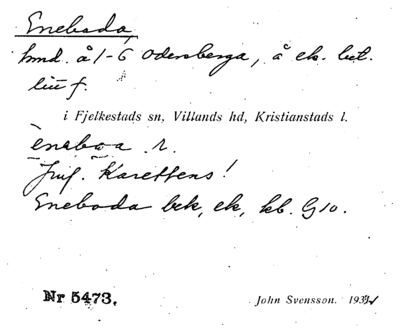 Eneboda,
hmd. å 1-6 Odersberga, å ek. bet.
litt f.
i Fjelkestads sn, Villands hd, Kristianstads l.
eneboa r.
Jmf. Karettens!
Eneboda bek, ek, kb. G10.
Nr 5473.
John Svensson. 193